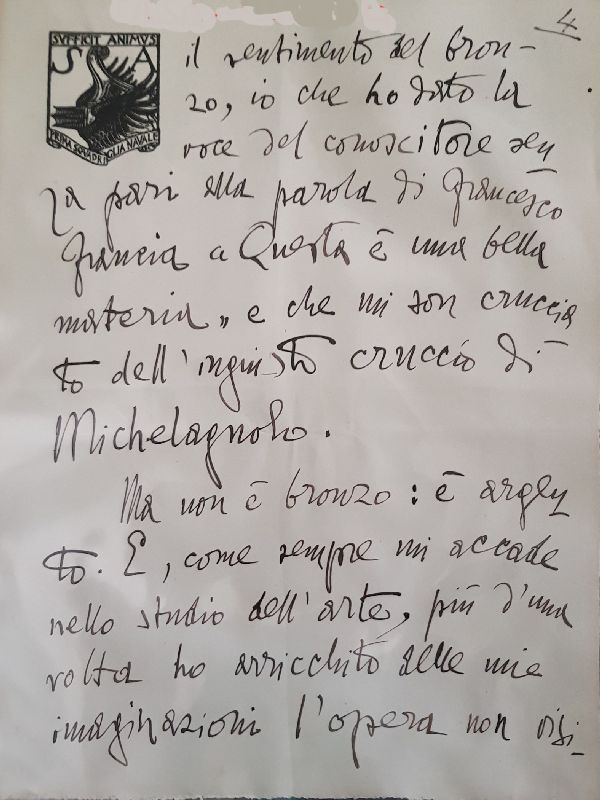 4
SVFFICIT ANIMVS
S A
PRIMA SQUADRIGLIA NAVALE
il sentimento del bron-
zo, io che ho dato la
voce del conoscitore sen
za pari alla parola di Francesco
Francia « Questa è una bella
materia » e che mi son cruccia
to dell'ingiusto cruccio di
Michelagnolo.
Ma non è bronzo: è argen
to. E, come sempre mi accade
nello studio dell'arte, più d'una
volta ho arricchito delle mie
imaginazioni l'opera non visi-